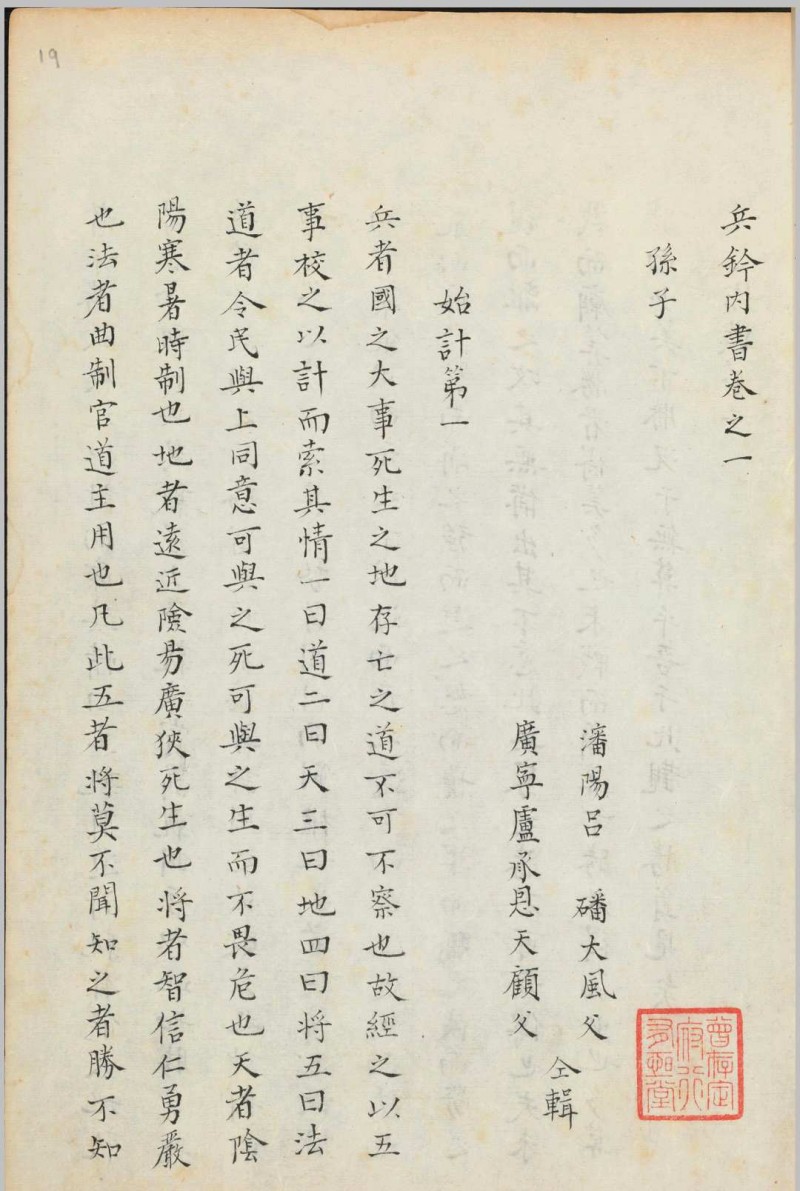 兵鈐内書卷之一
孫子
瀋陽呂　磻大風父
廣寧盧承恩天顧父
仝輯
始計第一
兵者國之大事死生之地存亡之道不可不察也故經之以五
事校之以計而索其情一曰道二曰天三曰地四曰将五曰法
道者令民與上同意可與之死可與之生而不畏危也天者陰
陽寒暑時制也地者遠近險易廣狹死生也将者智信仁勇嚴
也法者曲制官道主用也凡此五者将莫不聞知之者勝不知
19